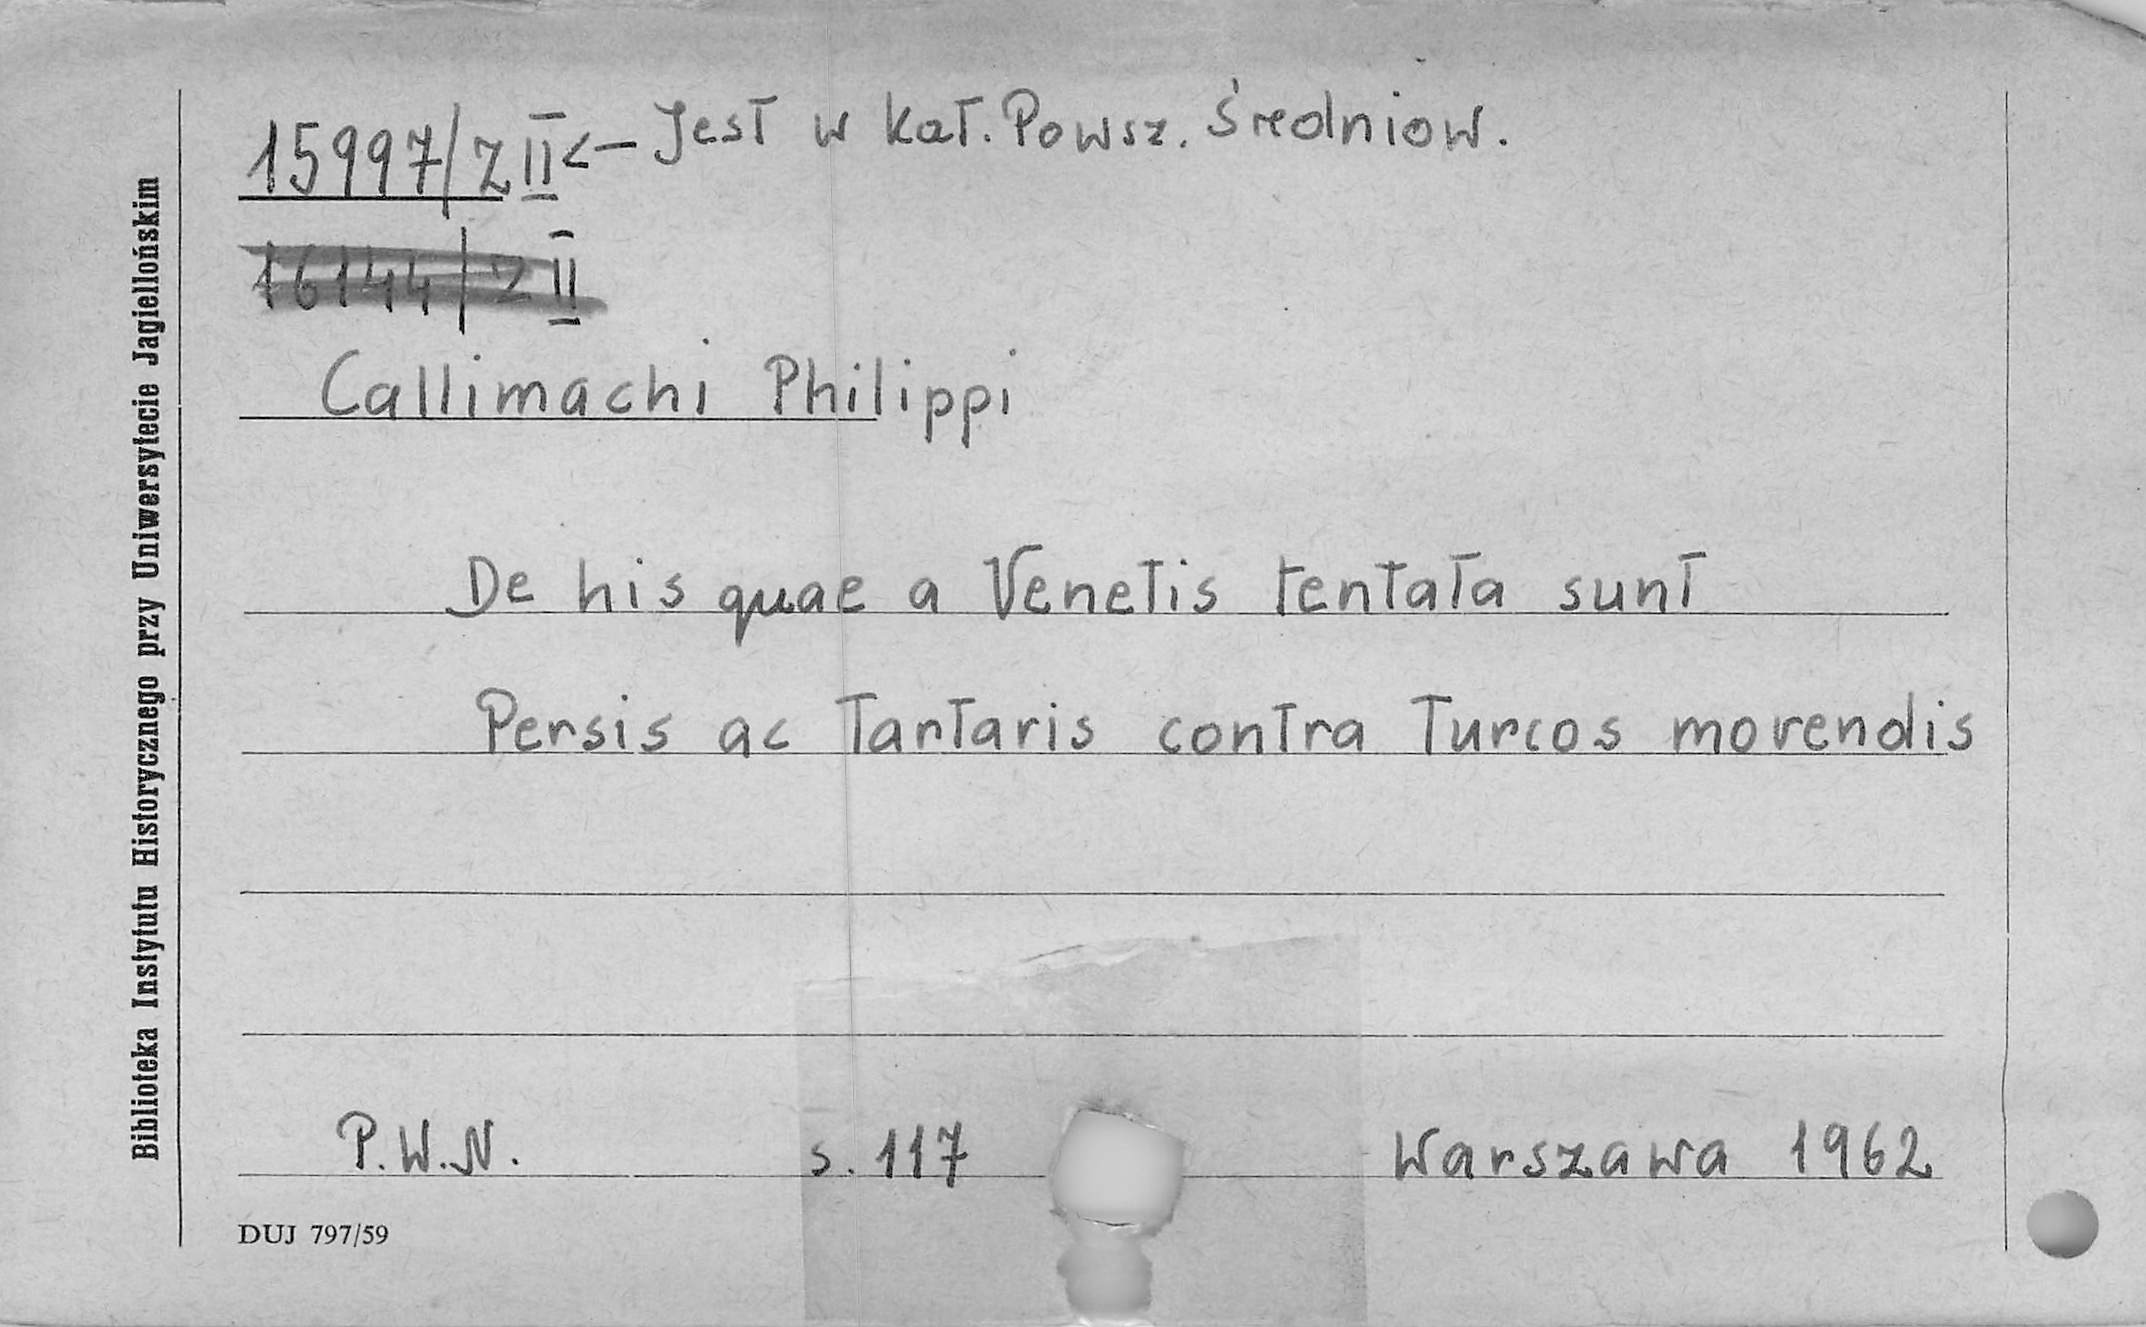 15997/Z II <- Jest w kat. Powsz. Średniow.
16144/Z II
Callimachi Philippi
De his quae a Venetis tentata sunt
Persis ac Tartaris contra Turcos movendis
P.W.N. s. 117 Warszawa 1962
DUJ 797/59
Biblioteka Instytutu Historycznego przy Uniwersytecie Jagiellońskim